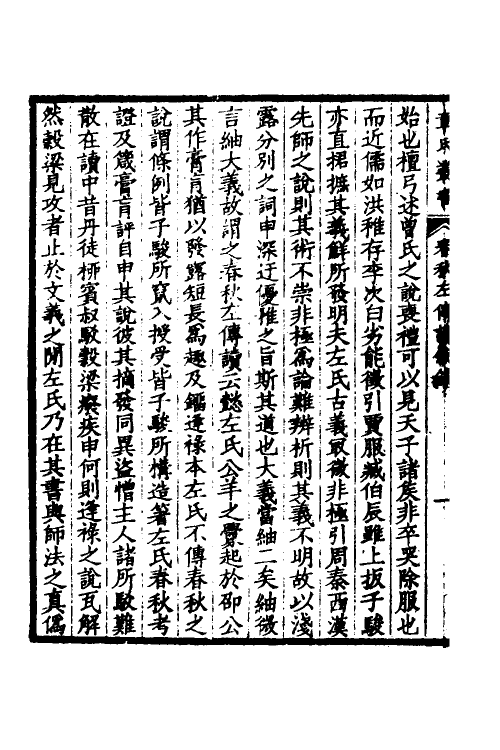 章氏叢書 春秋左傳讀敘錄 一
始也檀弓述曾氏之說喪禮可以見天子諸矦非卒哭除服也
而近儒如洪稚存李次白劣能徵引賈服臧伯辰雖上扳子駿
亦直捃摭其義鮮所發明夫左氏古義最微非極引周秦西漢
先師之說則其術不崇非極爲論難辨析則其義不明故以淺
露分別之詞申深迂優雅之旨斯其道也大義當紬二矣紬微
言紬大義故謂之春秋左傳讀云懿左氏公羊之釁起於卲公
其作膏肓猶以發露短長爲趣及鎦逢祿本左氏不傳春秋之
說謂條例皆子駿所竄入授受皆子駿所構造箸左氏春秋考
證及箴膏肓評自申其說彼其摘發同異盜憎主人諸所駁難
散在讀中昔丹徒柳賓叔駁穀梁癈疾申何則逢祿之說瓦解
然穀梁見攻者止於文義之閒左氏乃在其書與師法之眞僞